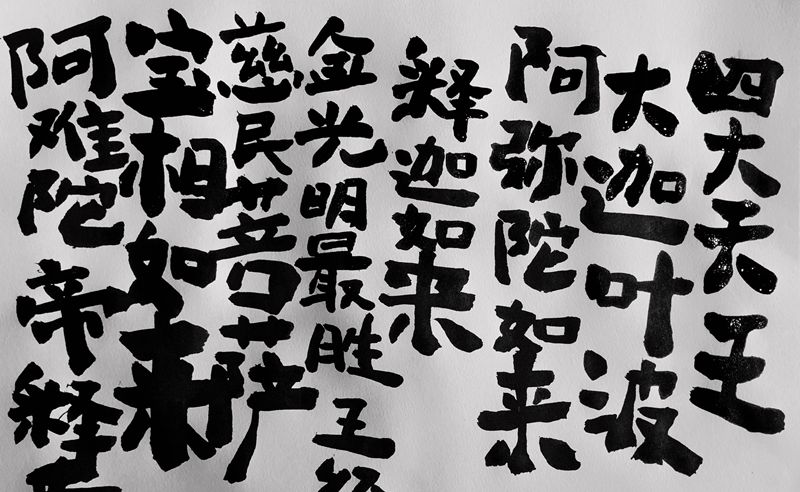 四大天王
大迦叶波
阿弥陀如来
释迦如来
金光明最胜王经
慈民菩萨
宝相如来
阿难陀帝释